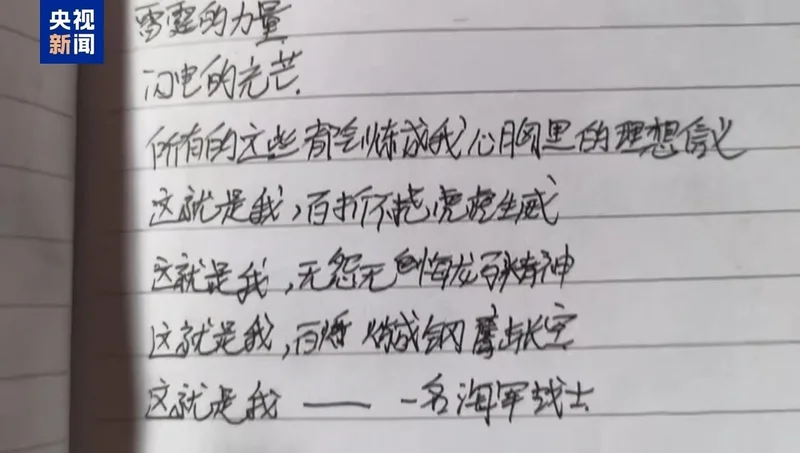 央视
新闻
雷霆的力量
闪电的光芒.
所有的这些都会炼成我心胸里的理想信义
这就是我,百折不挠虎虎生威
这就是我,无怨无悔龙马精神
这就是我,百 炼成钢 长空
这就是我 —— 一名海军战士